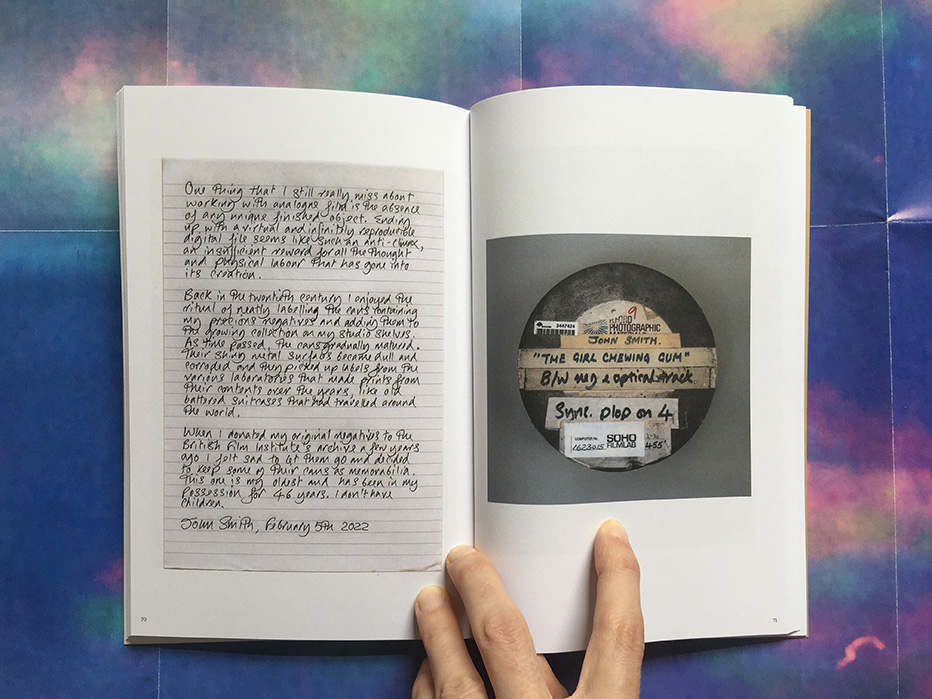 One thing that I still really miss about
working with analogue film is the absence
of any unique finished object. Ending
up with a virtual and infinitely reproducible
digital file seems like such an anti-climax,
an insufficient reward for all the thought
and physical labour that has gone into
its creation.
Back in the twentieth century I enjoyed the
ritual of neatly labelling the cans containing
my precious negatives and adding them to
the growing collection on my studio shelves.
As time passed, the cans gradually matured.
Their shiny metal surfaces became dull and
corroded and they picked up labels from the
various laboratories that made prints from
their contents over the years, like old
battered suitcases that had travelled around
the world.
When I donated my original negatives to the
British Film Institute's archive a few years
ago I felt sad to let them go and decided
to keep some of their cans as memorabilia.
This one is my oldest and has been in my
possession for 46 years. I don't have
children.
John Smith, February 5th 2022
70
9
3447424
PHOTOGRAPHIC
JOHN SMITH.
"THE GIRL CHEWING GUM"
B/W neg & optical track
Sync. plop on 4
COMPUTER No.
1623015
SOHO
FILMLAB
455'
71